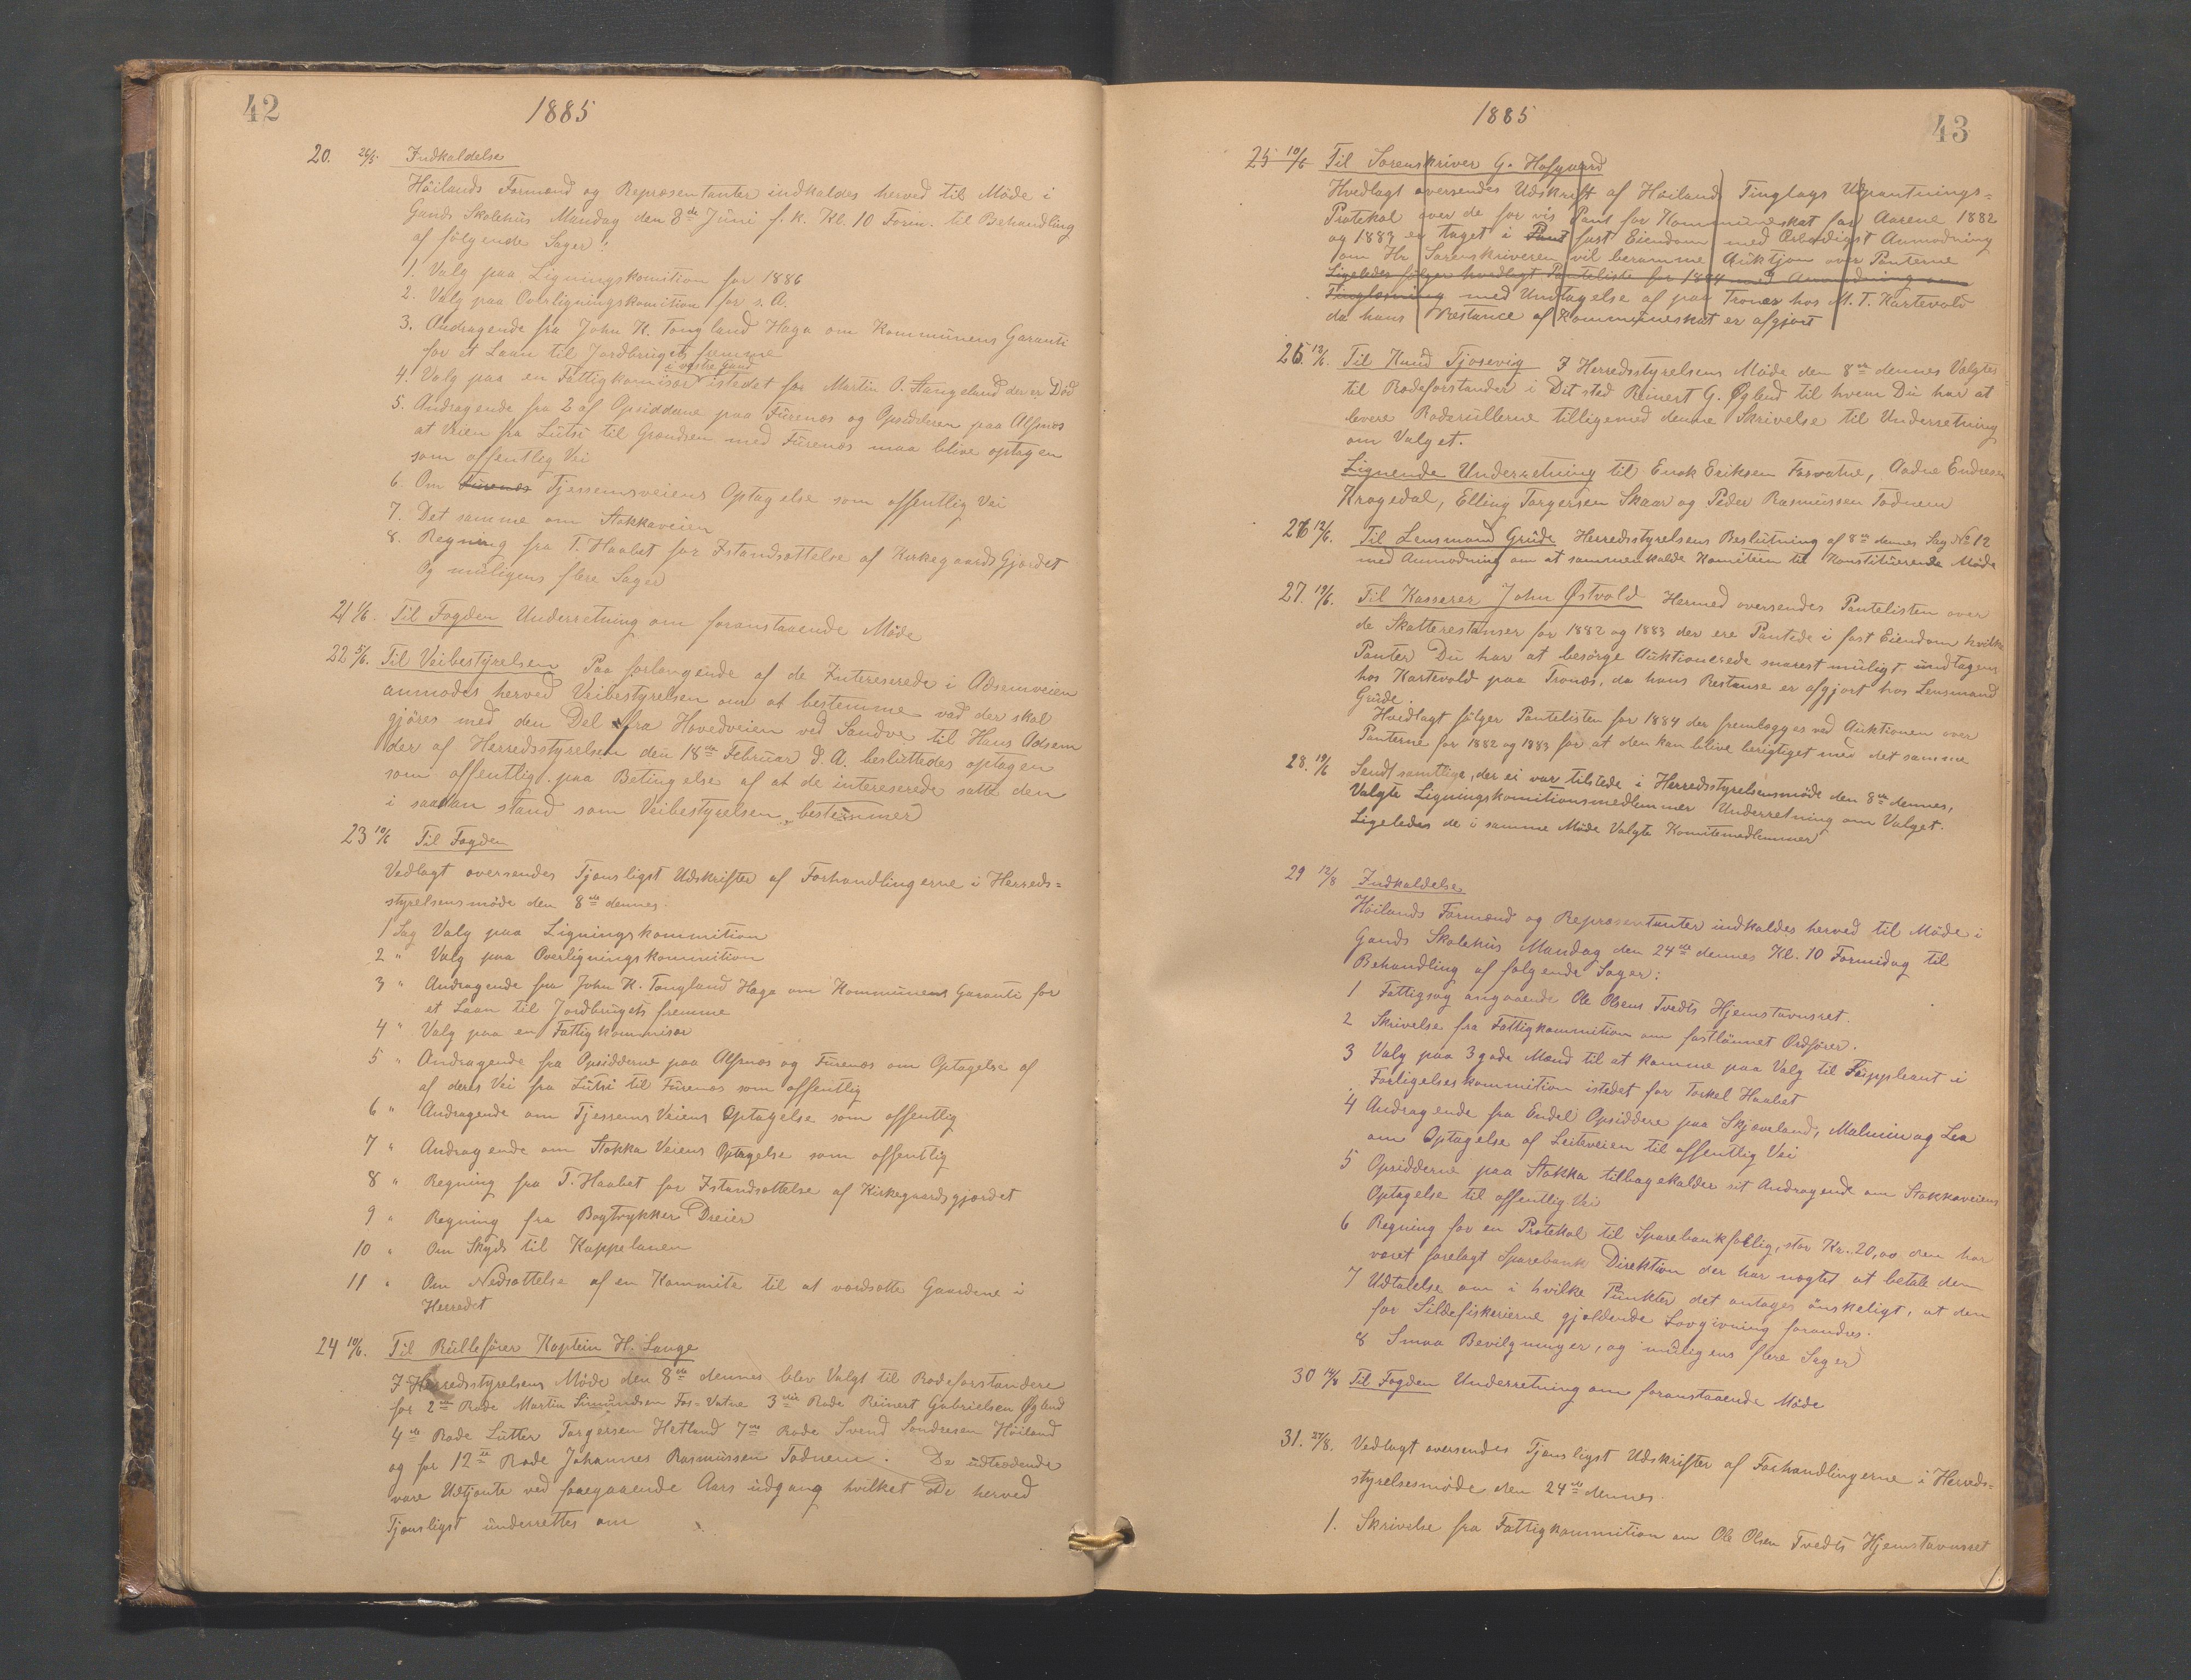 42
1885
20. 26/5. Indkaldelse
Höilands Formænd og Repræsentanter indkaldes herved til Möde i
Gands Skolehus Mandag den 8de Juni f. k. Kl. 10 Form. til Behandling
af fölgende Sager:
1. Valg paa Ligningskomition for 1886
2. Valg paa Overligningskomition for s. A.
3. Andragende fra John K. Tongland Haga om Kommunens Garanti
for et Laan til Jordbrugets fremme
i vestre Gand
4. Valg paa en Fattigkomisær istedet for Martin O. Stangeland der er Död
5. Andragende fra 2 af Opsiddere paa Furenæs og Opsidderen paa Alsnæs
at Veien fra Lutsi til Grændsen med Furenæs maa blive optagen
som offentlig Vei
6. Om Furenæs Tjessemsveiens Optagelse som offentlig Vei
7. Det samme om Stokkaveien
8. Regning fra T. Haabet for Istandsættelse af Kirkegaards Gjærdet
Og muligens flere Sager
21 1/6. Til Fogden Underretning om foranstaaende Möde
22 5/6. Til Veibestyrelsen Paa forlangende af de Intereserede i Adsemveien
anmodes herved Veibestyrelsen om at bestemme vad der skal
gjöres med den Del fra Hovedveien ved Sandve til Hans Adsem
der af Herredsstyrelsen den 18de Februar d. A. besluttedes optagen
som offentlig paa Betingelse af at de intereserede satte den
i saadan stand som Veibestyrelsen bestemmer
23 10/6 Til Fogden
Vedlagt oversendes Tjensligst Udskrifter af Forhandlingerne i Herreds=
styrelsensmöde den 8de dennes.
1 Sag Valg paa Ligningskommition
2 " Valg paa Overligningskommition
3 " Andragende fra John K. Tongland Haga om Kommunens Garanti for
et Laan til Jordbrugets fremme
4 " Valg paa en Fattigkommisær
5 " Andragende fra Opsidderne paa Alsnæs og Furenæs om Optagelse af
af deres Vei fra Lutsi til Furenæs som offentlig
6 " Andragende om Tjessems Veiens Optagelse som offentlig
7 " Andragende om Stokka Veiens Optagelse som offentlig
8 " Regning fra T. Haabet for Istandsættelse af Kirkegaardsgjærdet
9 " Regning fra Bogtrykker Dreier
10 " Om Skyds til Kappelanen
11 " Om Nedsættelse af en Kommite til at værdsætte Gaardene i
Herredet
24 10/6. Til Rullefører Kaptein H. Lange
I Herredsstyrelsens Möde den 8de dennes blev Valgt til Rodeforstandere
for 2den Rode Martin Simundsen Fos=Vatne 3die Rode Reinert Gabrielsen Øglend
4de Rode Lutter Torgersen Hetland 7de Rode Svend Sondresen Höiland
og for 12te Rode Johannes Rasmussen Todnem. De udtrædende
vare Udtjente ved foregaaende Aars udgang hvilket De herved
Tjensligst underrettes om
43
1885
25 10/6 Til Sorenskriver G. Hofgaard
Hvedlagt oversendes Udskrift af Höiland Tinglags Udpantnings=
Protokol over de for vis Pant for Kommuneskat for Aarene 1882
og 1883 er taget i Pant fast Eiendom med Ærbødigst Anmodning
om Hr Sorenskriveren vil beramme Auktjon over Panterne
Ligeledes fölger hvedlagt Panteliste for 1884 med Anmodning om
Tinglæsning med Undtagelse af paa Tronæs hos M. T. Kartevold
da hans Restance af Kommuneskat er afgjort
25. 12/6. Til Knud Tjosevig I Herredsstyrelsens Möde den 8de dennes Valgtes
til Rodeforstander i Dit sted Reinert G. Øglend til hvem Du har at
levere Roderullerne tilligemed denne Skrivelse til Underretning
om Valget.
Lignende Underretning til Enok Eriksen Fosvatne, Aadne Endresen
Kragedal, Elling Torgersen Skaar og Peder Rasmussen Todnem
26 12/6. Til Lensmand Grude Herredsstyrelsens Beslutning af 8de dennes Sag No 12
med Anmodning om at sammenkalde Komiteen til Konstituerende Möde
27. 19/6. Til Kasserer John Østvold Hermed oversendes Pantelisten over
de Skatterestanser for 1882 og 1883 der ere Pantede i fast Eiendom hvilke
Panter Du har at besörge Auktionerede snarest muligt undtagens
hos Kartevold paa Tronæs, da hans Restanse er afgjort hos Lensmand
Grude.
Hvedlagt fölger Pantelisten for 1884 der fremlægges ved Auktionen over
Panterne for 1882 og 1883 for at den kan blive berigtiget med det samme
28. 19/6 Sendt samtlige, der ei var tilstede i Herredsstyrelsensmöde den 8de dennes,
Valgte Ligningskomitionsmedlemmer Underretning om Valget.
Ligeledes de i samme Möde Valgte Komitemedlemmer
29 12/8 Indkaldelse
Höilands Formænd og Repræsentanter indkaldes herved til Möde i
Gands Skolehus Mandag den 24de dennes Kl. 10 Formidag til
Behandling af følgende Sager:
1 Fattigsag angaaende Ole Olsens Tvedts Hjemstavnsret.
2 Skrivelse fra Fattigkommition om fastlönnet Ordfører.
3 Valg paa 3 gode Mænd til at komme paa Valg til Suppleant i
Forligelseskommition istedet for Torkel Haabet
4 Andragende fra Endel Opsiddere paa Skjæveland, Malmin og Lea
om Optagelse af Leiteveien til offentlig Vei
5 Opsidderne paa Stokka tilbagekalder sit Andragende om Stokkaveiens
Optagelse til offentlig Vei
6 Regning for en Protokol til Sparebankfollig, stor Kr. 20,00 den har
været forelagt Sparebank Direktion der har nægtet at betale den
7 Udtalelse om i hvilke Punkter det antages önskeligt, at den
for Sildefiskerierne gjældende Lovgivning forandres.
8 Smaa Bevilgninger, og muligens flere Sager
30 14/8 Til Fogden Underretning om foranstaaende Möde
31. 27/8. Vedlagt oversendes Tjensligst Udskrifter af Forhandlingerne i Herreds=
styrelsesmöde den 24de dennes.
1. Skrivelse fra Fattigkommition om Ole Olsen Tvedts Hjemstavnsret